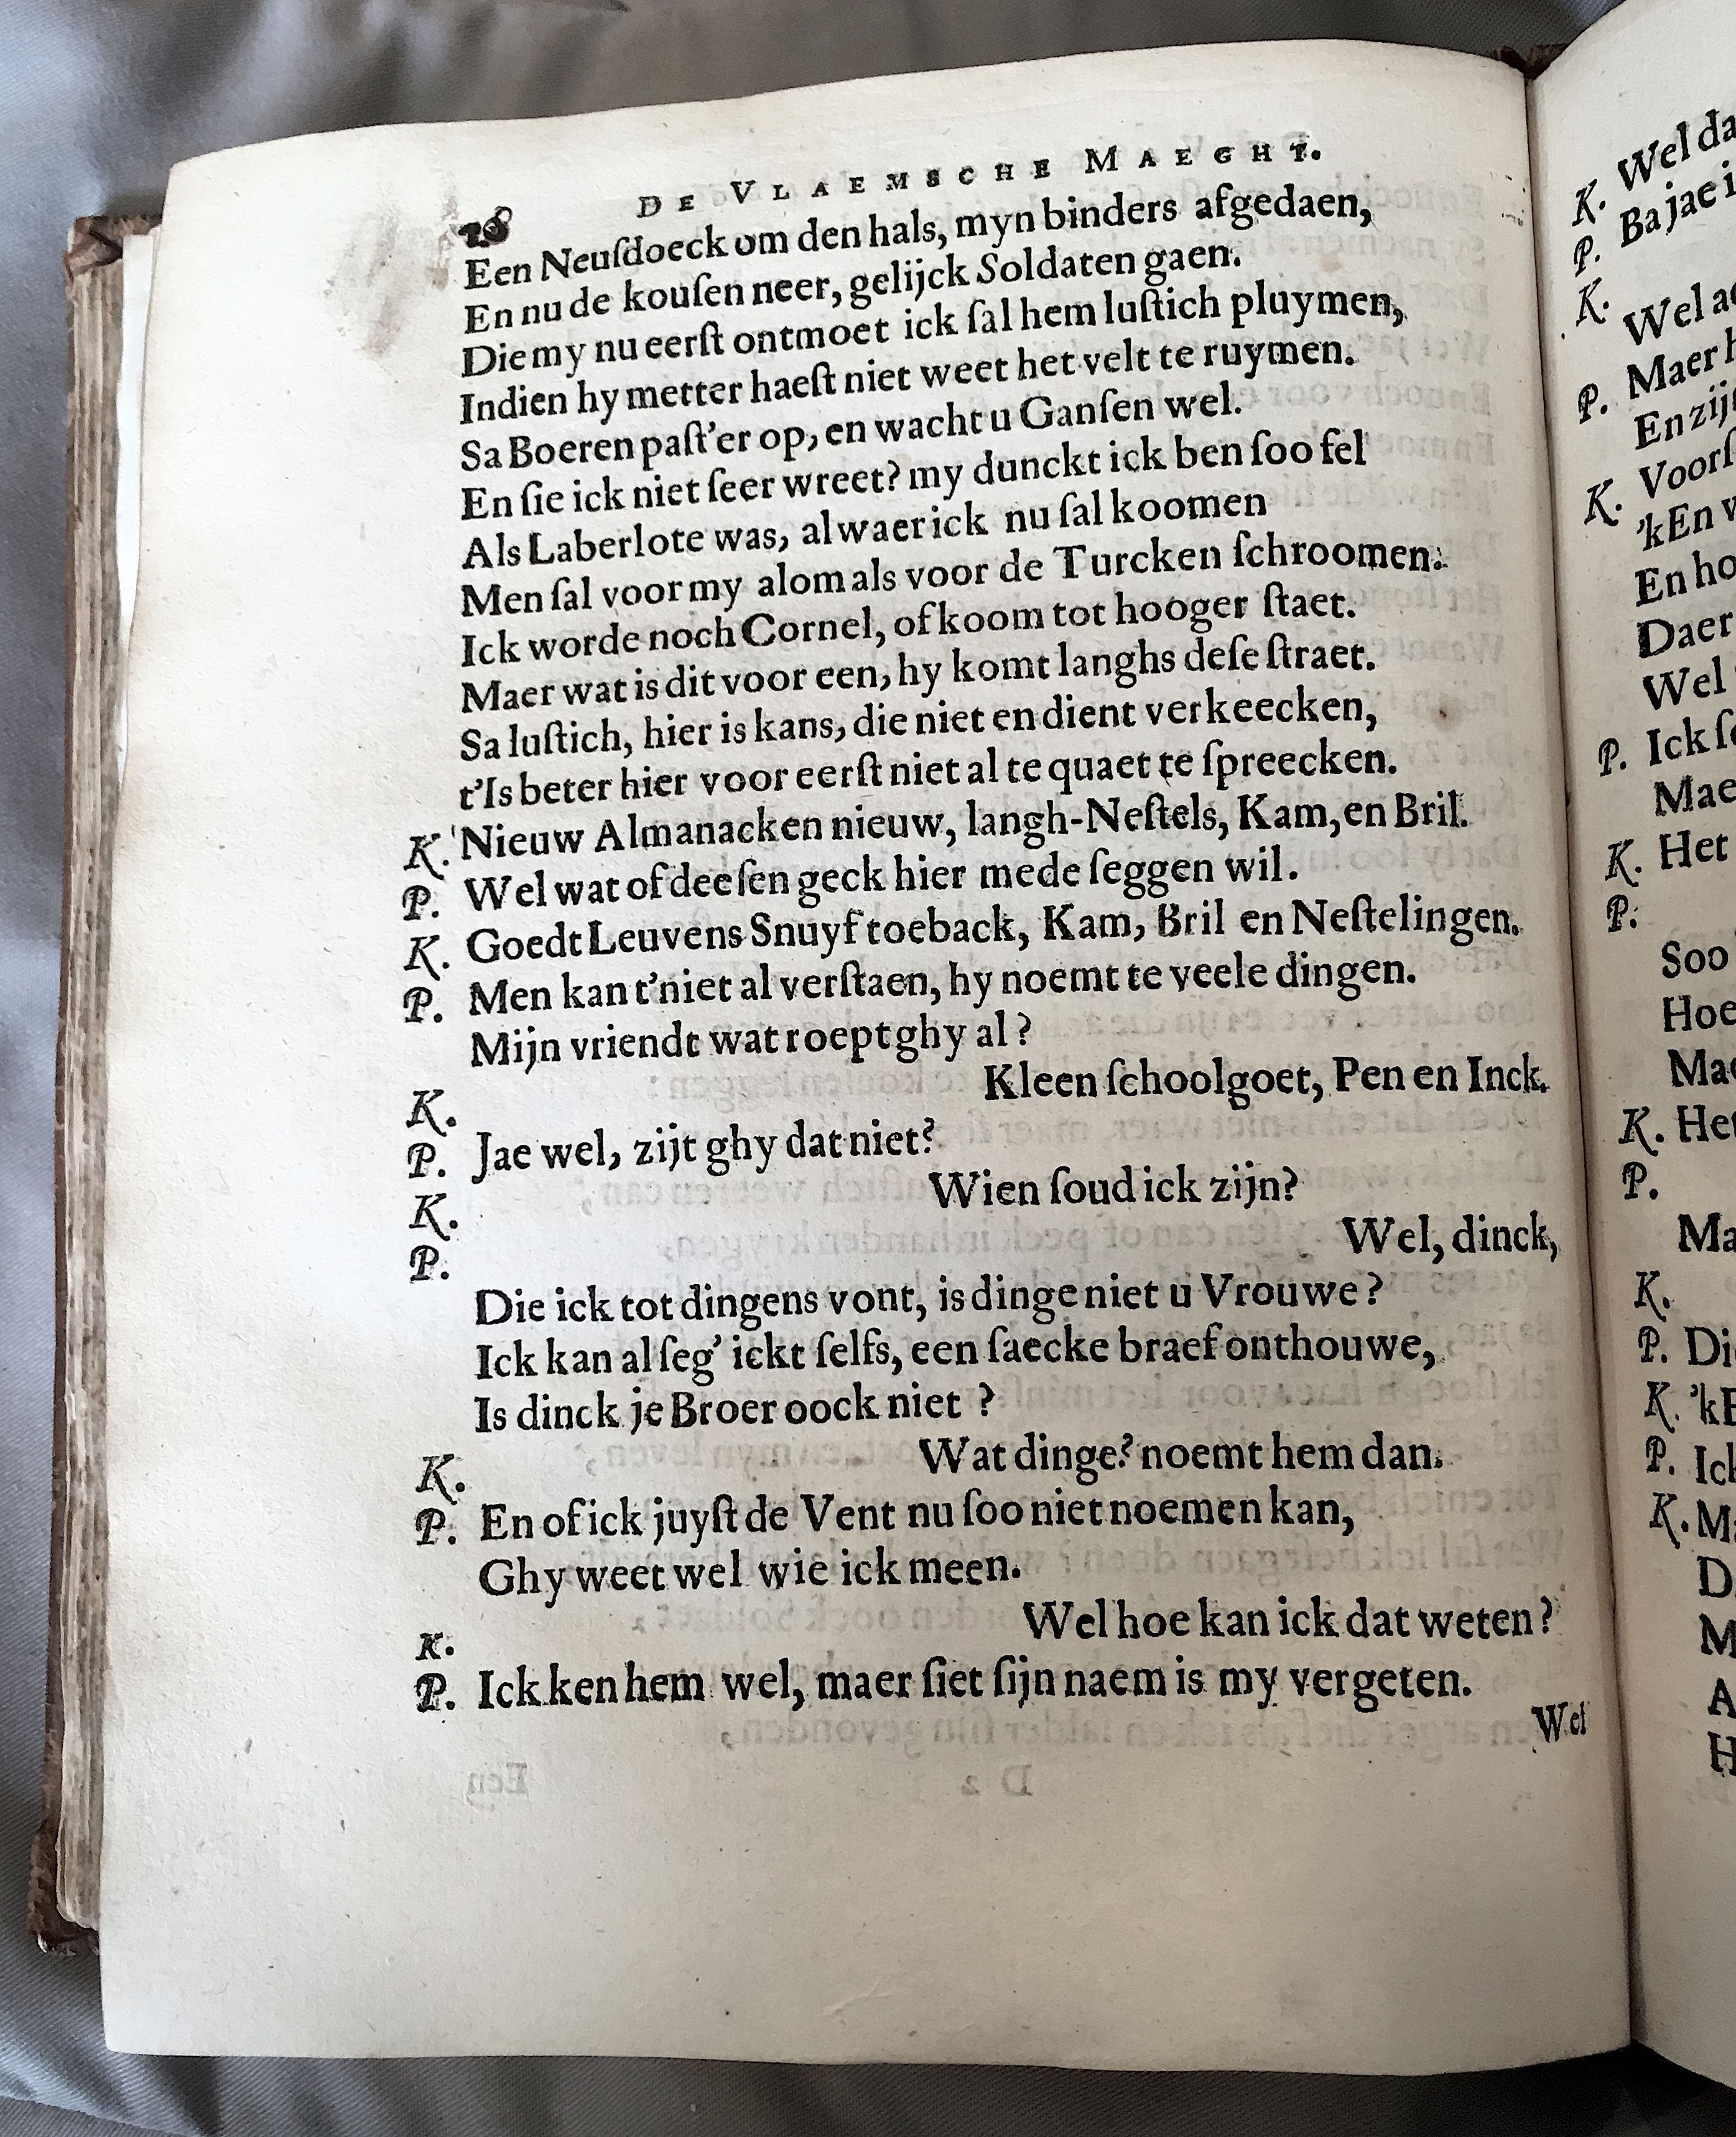 28 DE VLAEMSCHE MAEGHT.
Een Neuſdoeck om den hals, myn binders afgedaen,
En nu de kouſen neer, gelijck Soldaten gaen.
Die my nu eerſt ontmoet ick ſal hem luſtich pluymen,
Indien hy metter haeſt niet weet het velt te ruymen.
Sa Boeren paſt'er op, en wacht u Ganſen wel.
En ſie ick niet ſeer wreet? my dunckt ick ben ſoo fel
Als Laberlote was, al waer ick nu ſal koomen
Men ſal voor my alom als voor de Turcken ſchroomen.
Ick worde noch Cornel, of koom tot hooger ſtaet.
Maer wat is dit voor een, hy komt langhs deſe ſtraet.
Sa luſtich, hier is kans, die niet en dient verkeecken,
t'Is beter hier voor eerſt niet al te quaet te ſpreecken.
K. 'Nieuw Almanacken nieuw, langh-Neſtels, Kam, en Bril.
P. Wel wat of deeſen geck hier mede ſeggen wil.
K. Goedt Leuvens Snuyf toeback, Kam, Bril en Neſtelingen.
P. Men kan t'niet al verſtaen, hy noemt te veele dingen.
Mijn vriendt wat roept ghy al?
K. Kleen ſchoolgoet, Pen en Inck.
P. Jae wel, zijt ghy dat niet?
K. Wien ſoud ick zijn?
P. Wel, dinck,
Die ick tot dingens vont, is dinge niet u Vrouwe?
Ick kan al ſeg' ickt ſelfs, een ſaecke braef onthouwe,
Is dinck je Broer oock niet?
K. Wat dinge? noemt hem dan.
P. En of ick juyſt de Vent nu ſoo niet noemen kan,
Ghy weet wel wie ick meen.
K. Wel hoe kan ick dat weten?
P. Ick ken hem wel, maer ſiet ſijn naem is my vergeten.
Wel
K. Wel
P. Ba jae
K.
Wel
P. Maer
En
K.
'kEn
En
Daer
Wel
P. Ick
K. Het
P.
Soo
Hoe
K.
P.
K.
P.
K.
P.
K.